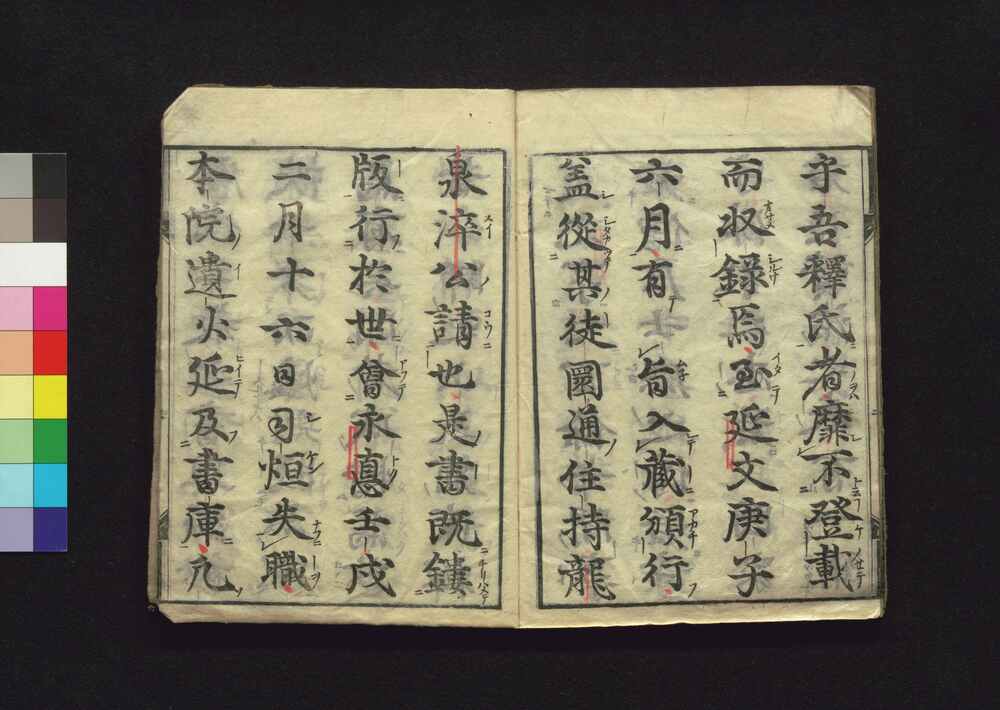 字吾釋氏者靡不登載
而収錄焉至延文庚子
六月有旨入藏頒行
盖從其徒圜通住持龍
泉淬公請也是書既鏤
版行於世曾永悳壬戌
二月十六日司烜失職
本院遺火延及書庫凢